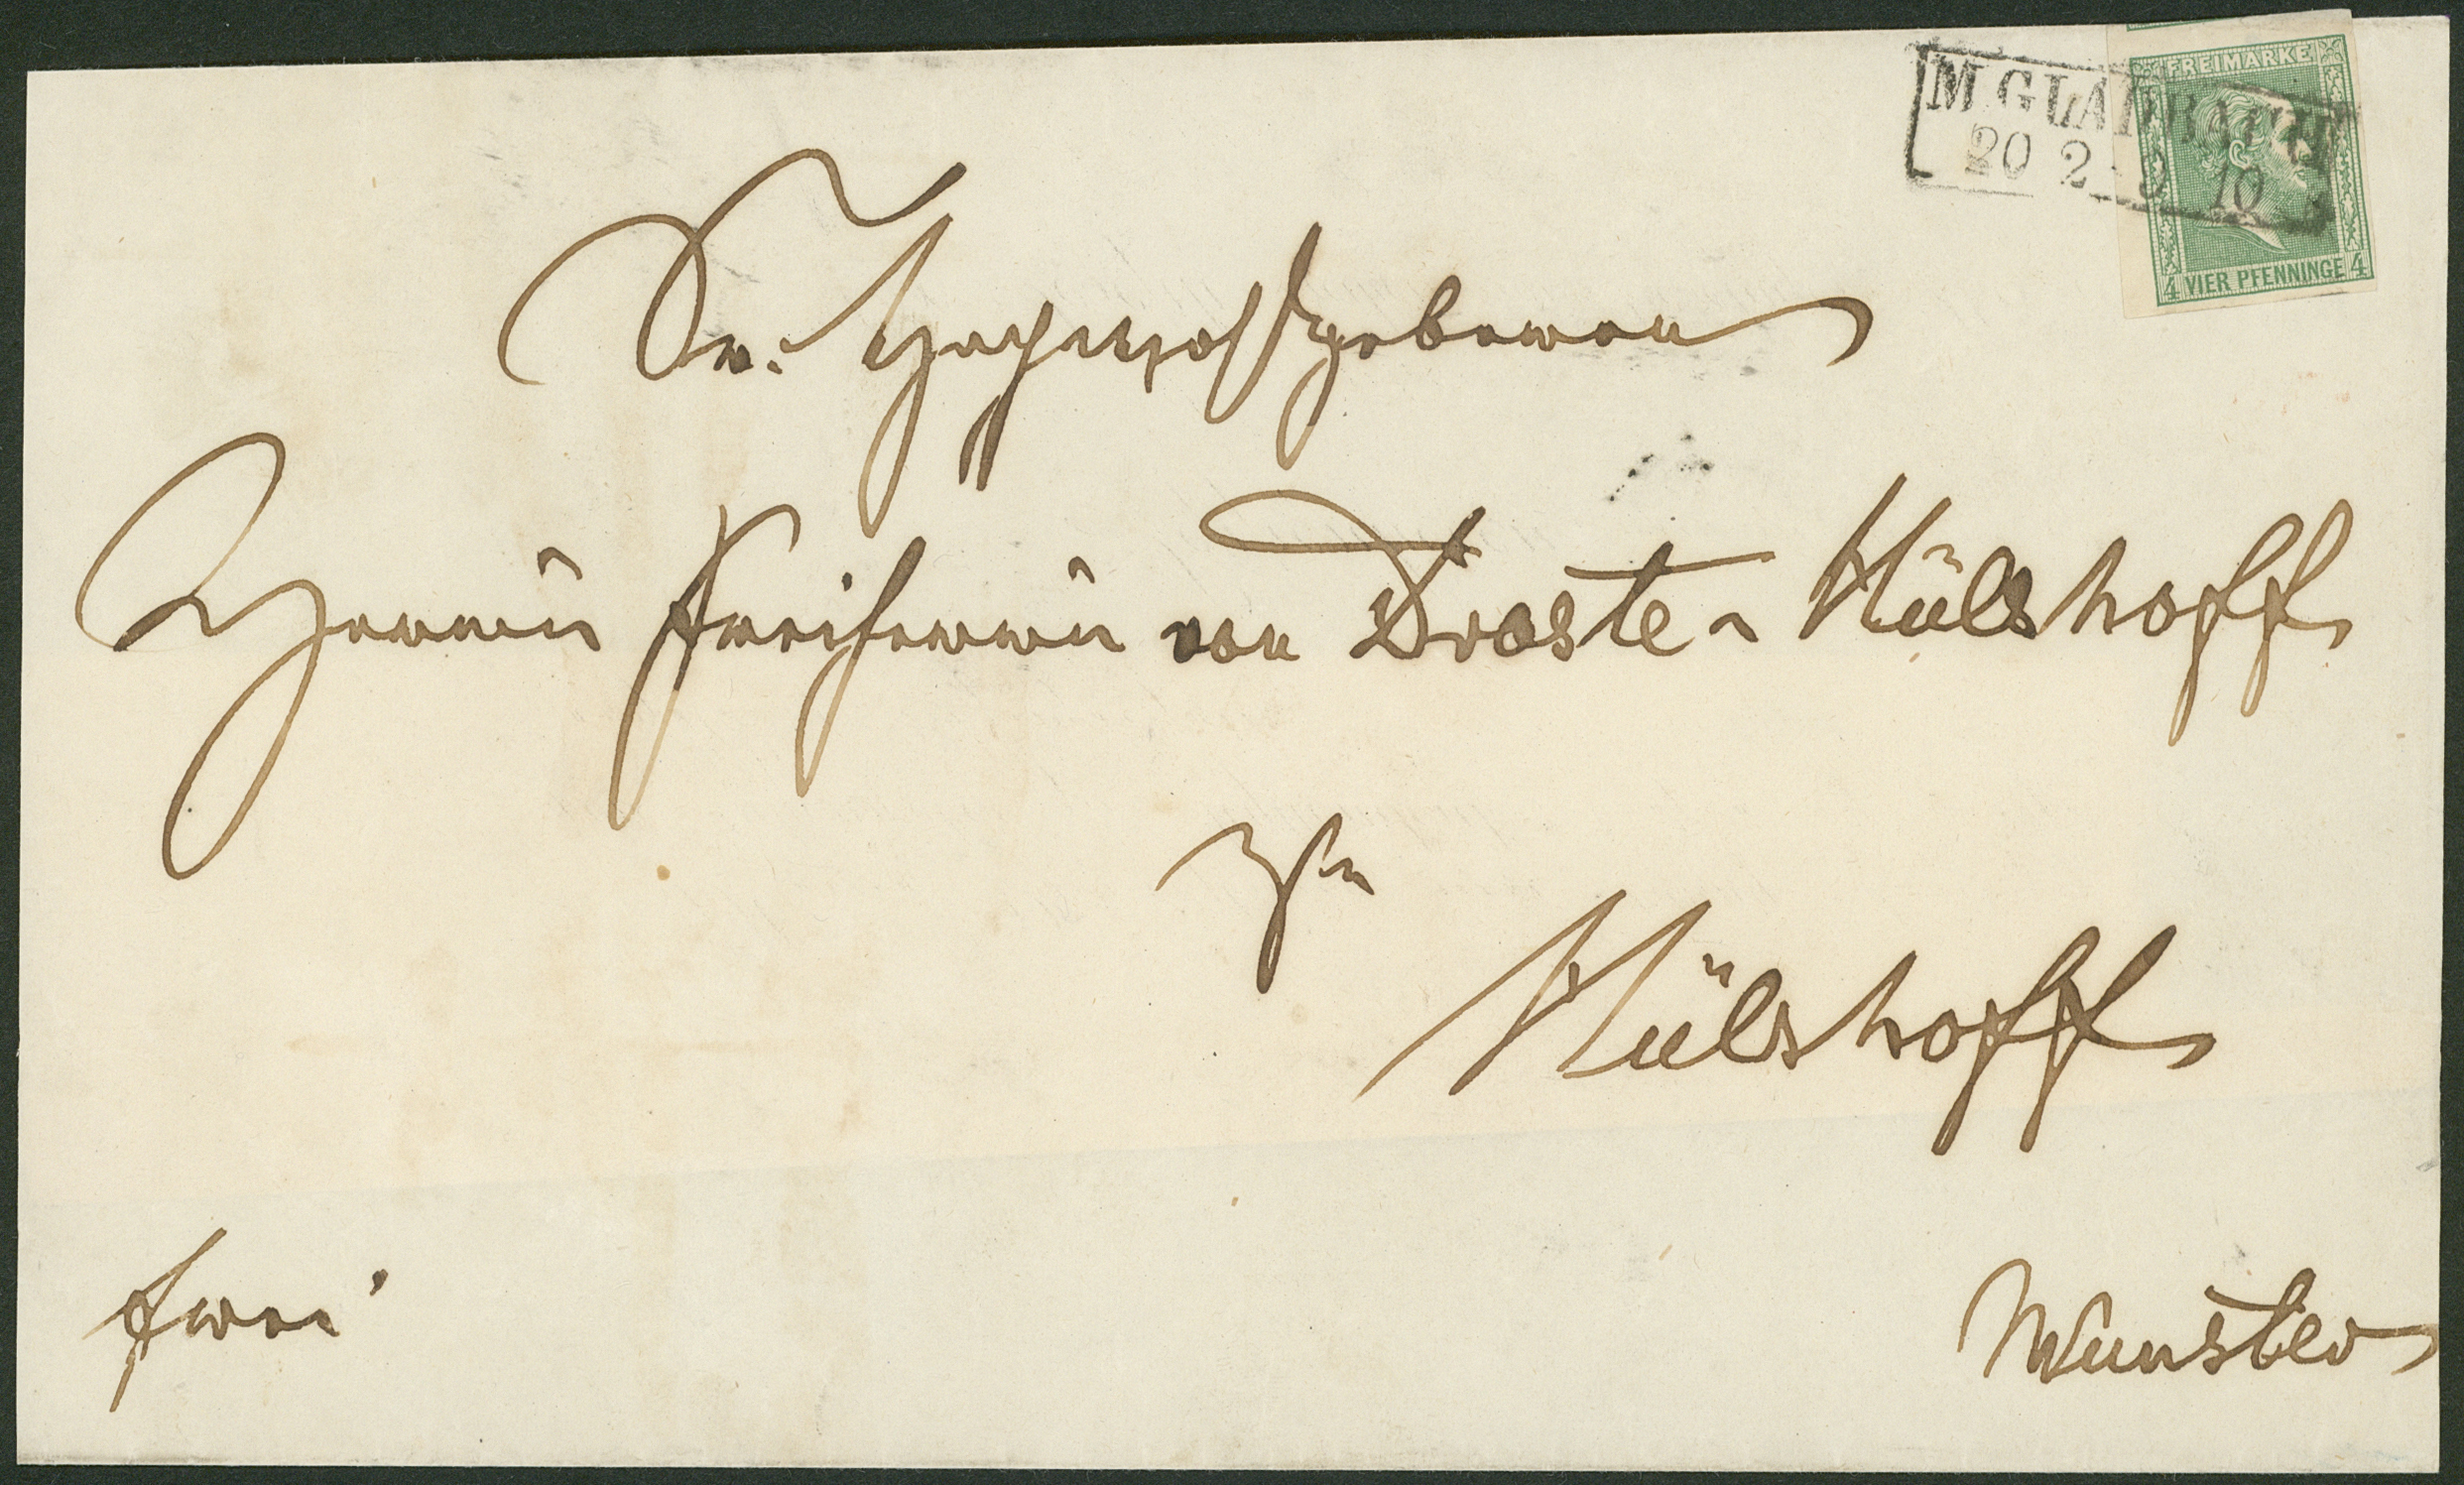 M. GLADBACH
20 2 * 9 10
FREIMARKE
4 VIER PFENNINGE 4
Sr. Hochwohlgeboren
Herrn Freiherrn von Droste-Hülshoff
zu
Hülshoff
frei
Münster